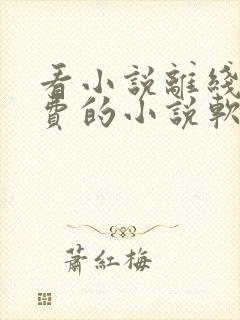 看小說離綫
費的小說軟
蕭紅梅